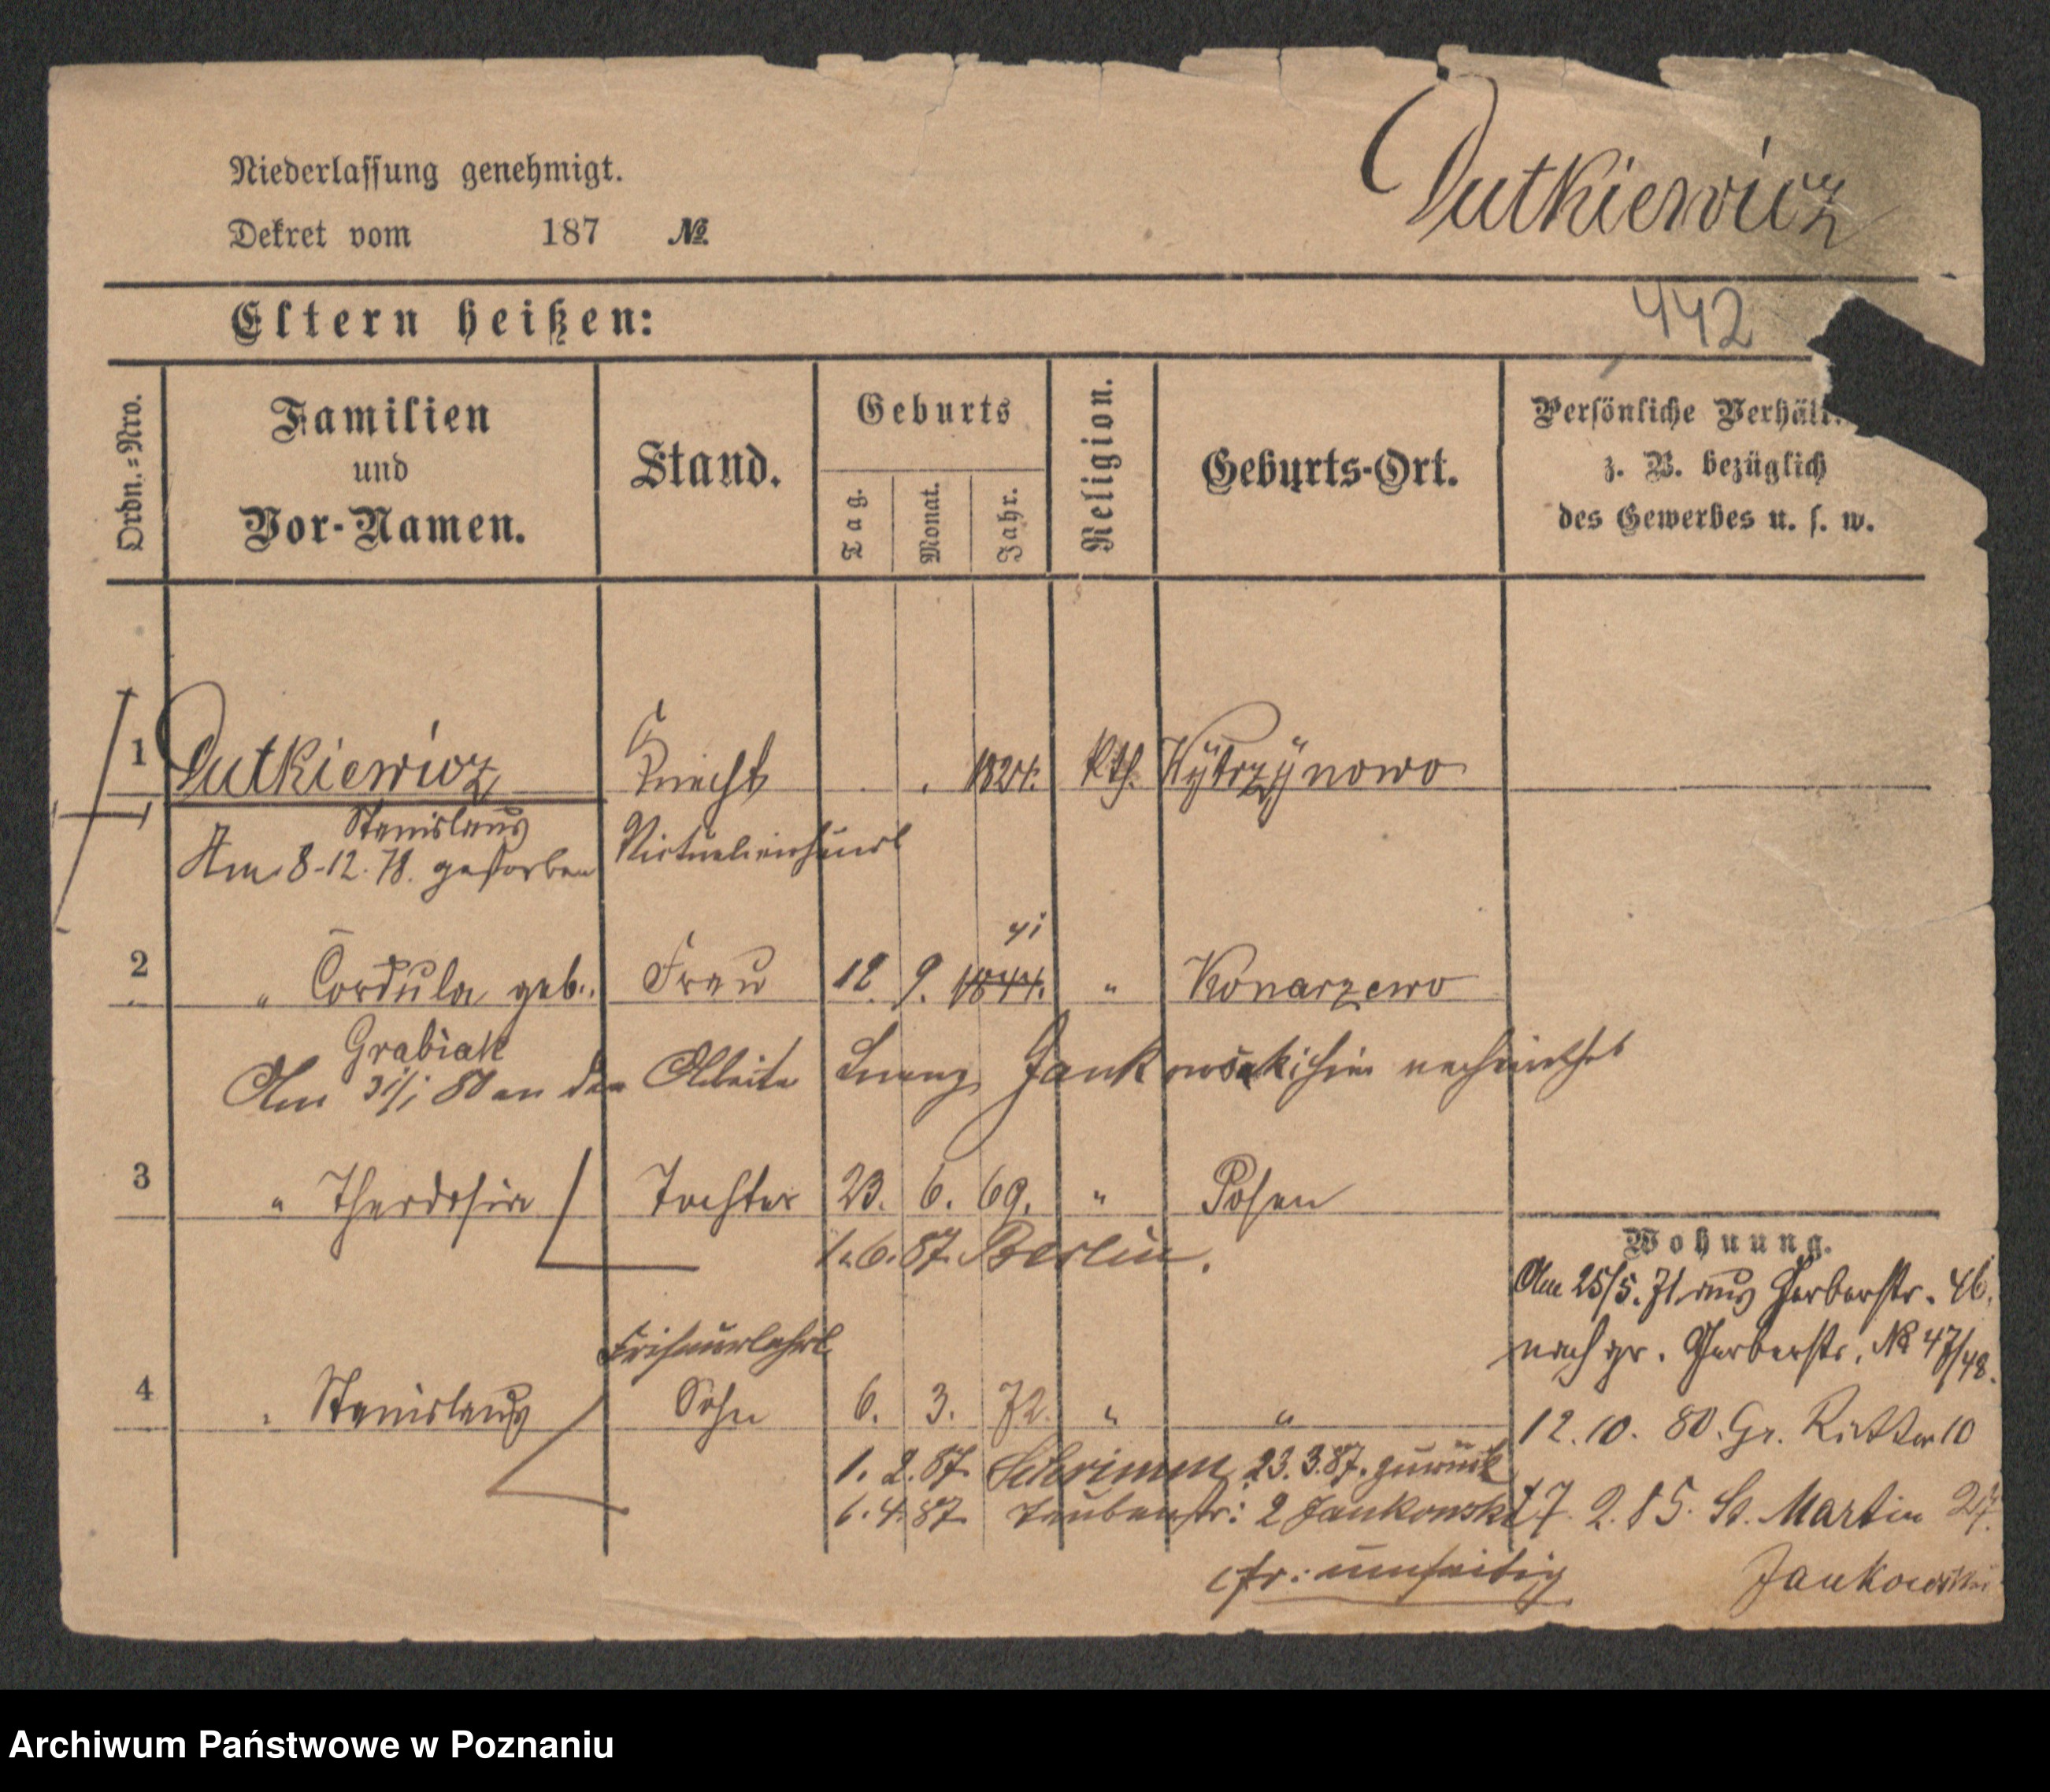 Dutkiewicz
Niederlassung genehmigt.
Dekret vom 187 №
442
Eltern heißen:
Ordn.=Nro.
Familien
und
Vor-Namen.
Stand.
Geburts
Tag.
Monat.
Jahr.
Religion.
Geburts-Ort.
Persönliche Verhält
z. B. bezüglich
des Gewerbes u. s. w.
1 Dutkiewicz Knecht 1824. kth.
Stanislaus
Am 8-12.78. gestorben
2 " Cordula geb. Frau 12. 9. 1844. " Konarzewo
41
Grabiak
Am 31/1 80 an den Lorenz Jankowski
3 " Theodosia Tochter 23. 6. 69. " Posen
1.6.87. Berlin.
Friseurlehrl.
4 " Stanislaus Sohn 6. 3. 72. " "
1. 2. 87. Schrimm 23.3.87. zurück
6. 4. 87. Taubenstr: 2 Jankowski
cfr: umseitig
Wohnung.
Am 25/5. 71 aus Gerberstr. 46.
nach gr. Gerberstr. № 47/48.
12. 10. 80. Gr. Ritter 10
17. 2. 85. St. Martin 27.
Jankowski
Archiwum Państwowe w Poznaniu